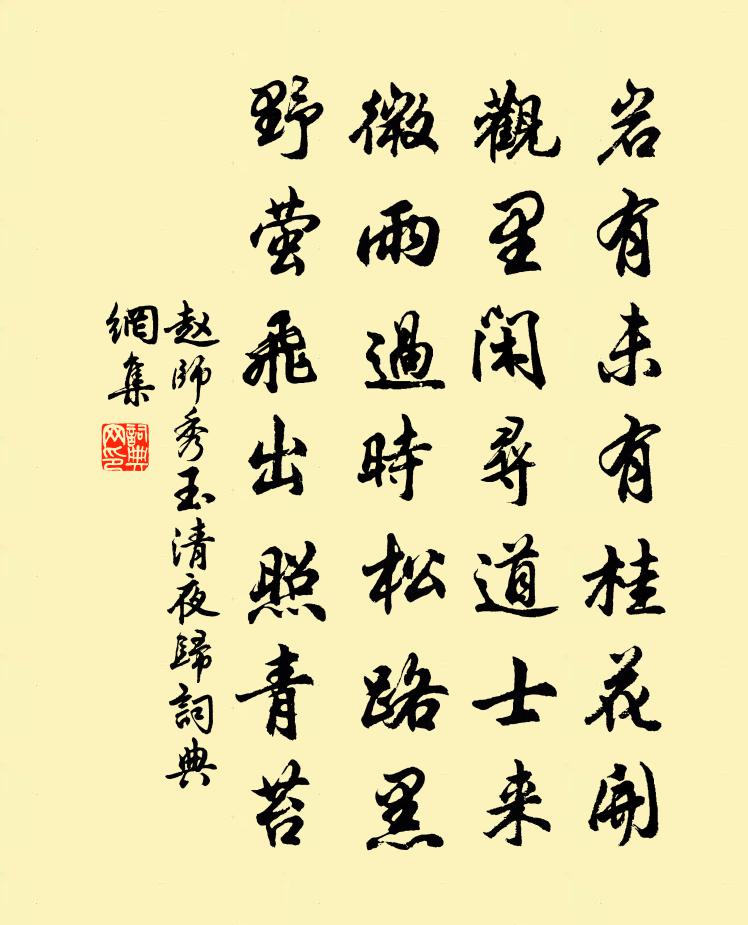 岩有未有桂花開
觀里閑尋道士来
微雨過時松路黑
野萤飛出照青苔
赵師秀玉清夜歸詞典
網集
詞典
网印